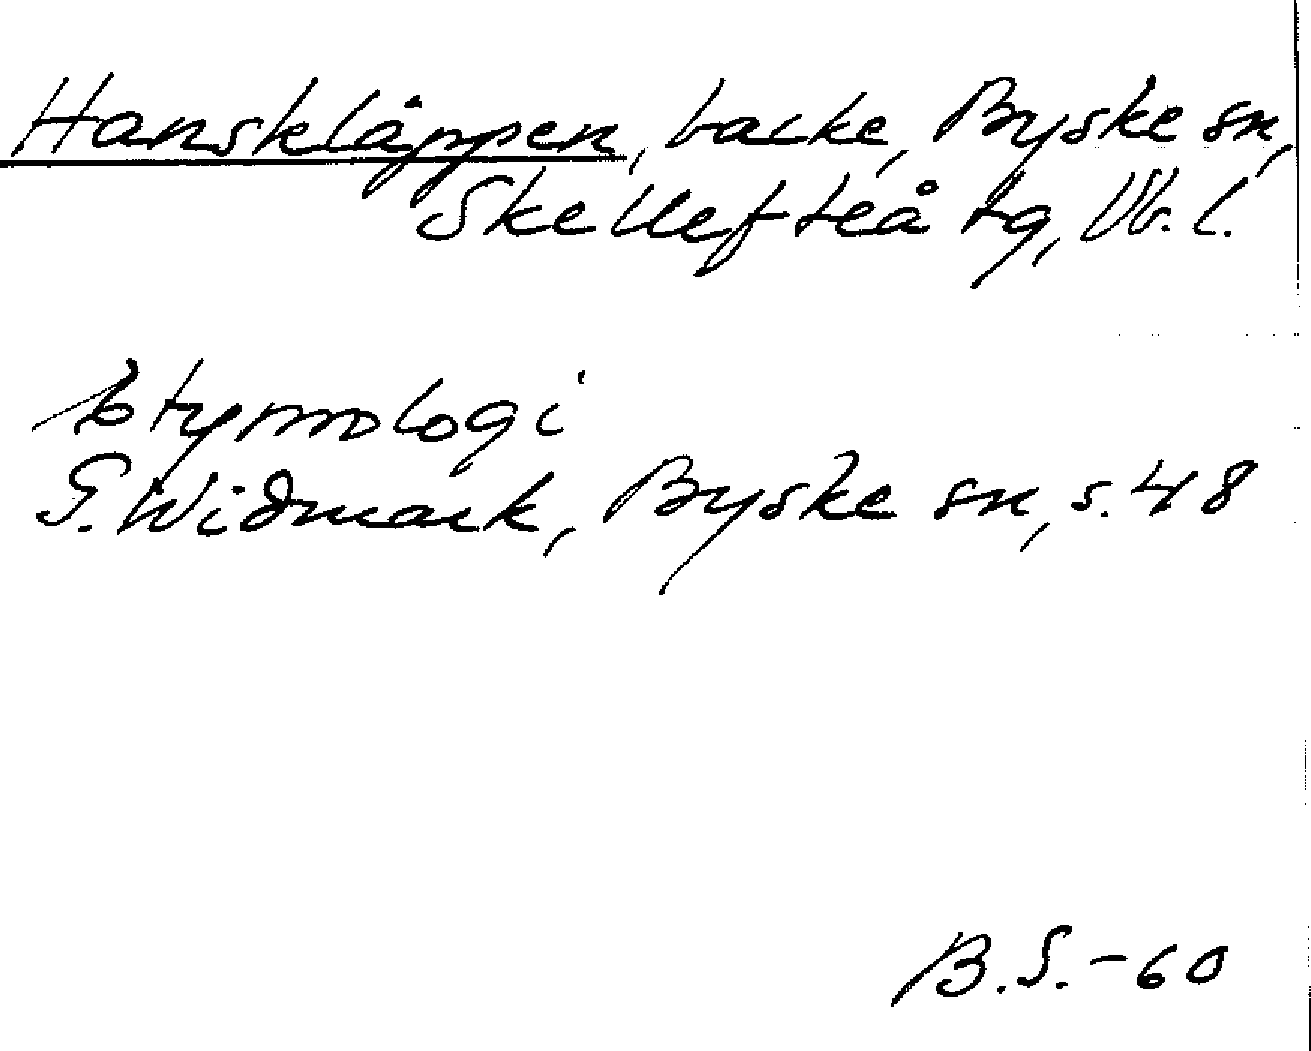 Hanskläppen, backe, Byske sn,
Skellefteå tg, Vb. l.
Etymologi
G. Widmark, Byske sn, s. 48
B.S.-60